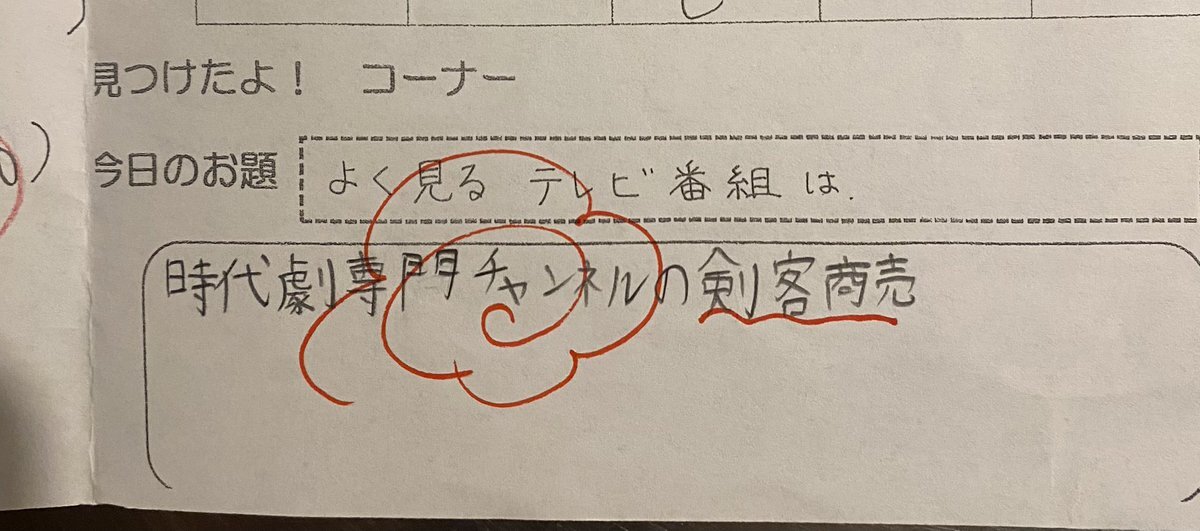 見つけたよ！ コーナー
今日のお題 よく見る テレビ番組は.
時代劇専門チャンネルの剣客商売